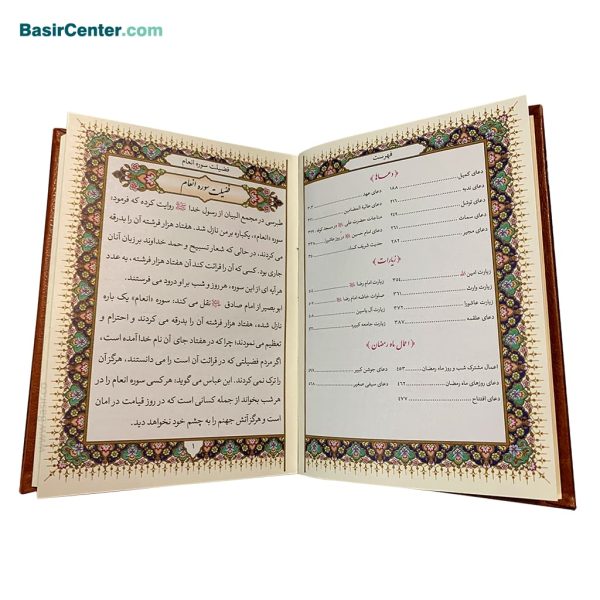 BasirCenter.com
فهرست
﴿ دعاها ﴾
دعای کمیل ۱۸۸
دعای ندبه
دعای توسل
دعای سمات ۲۶۱
دعای مجیر ۲۸۱
دعای عهد
دعای عالیة المضامین
مناجات حضرت علی در مسجد کوفه
دعای امام حسین در روز عاشورا
حدیث شریف کساء
﴿ زیارات ﴾
زیارت امین الله ۳۵۴
زیارت وارث ۳۶۱
زیارت عاشورا ۳۷۲
دعای علقمه ۳۸۷
زیارت امام رضا
صلوات خاصه امام رضا
زیارت آل یاسین
زیارت جامعه کبیره
﴿ اعمال ماه رمضان ﴾
اعمال مشترک شب و روز ماه رمضان ۴۵۳
دعای روزهای ماه رمضان ۴۶۲
دعای افتتاح ۴۷۷
دعای جوشن کبیر
دعای سیفی صغیر
فضیلت سوره انعام
فضیلت سوره انعام
طبرسی در مجمع البیان از رسول خدا ﷺ روایت کرده که فرمود:
سوره «انعام»، یکباره بر من نازل شد. هفتاد هزار فرشته آن را بدرقه
می کردند، در حالی که شعار تسبیح و حمد خداوند بر زبان آنان
جاری بود. کسی که آن را قرائت کند آن هفتاد هزار فرشته ، به عدد
هر آیه ای از این سوره، هر روز و شب بر او درود می فرستند.
ابو بصیر از امام صادق نقل می کند: سوره «انعام»، یک باره
نازل شده، هفتاد هزار فرشته آن را بدرقه می کردند و احترام و
تعظیم می نمودند؛ چرا که در هفتاد جای آن نام خدا آمده است،
اگر مردم فضیلتی که در قرائت آن است را می دانستند، هرگز آن
را ترک نمی کردند. ابن عباس می گوید: هر کسی سوره انعام را در
هر شب بخواند از جمله کسانی است که در روز قیامت در امان
است و هرگز آتش جهنم را به چشم خود نخواهد دید.
۱